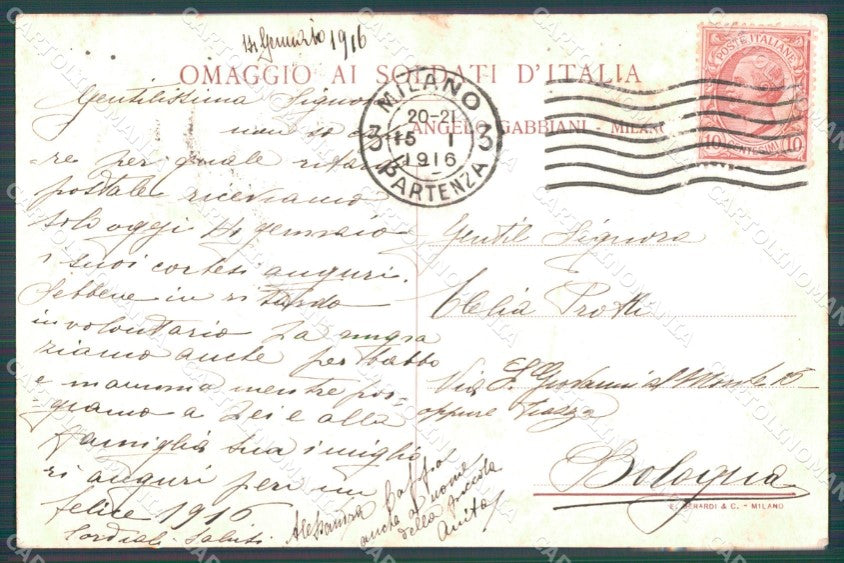 14 Gennaio 1916
OMAGGIO AI SOLDATI D'ITALIA
ANGELO GABBIANI - MILANO
MILANO
20-21
3 15 I 3
1916
PARTENZA
POSTE ITALIANE
10 CENTESIMI 10
Gentilissima Signora
non so
re per quale
postale riceviamo
solo oggi 14 gennaio
i suoi cortesi auguri.
Sebbene in ritardo
involontario La ringra
ziamo anche per babbo
e mamma mentre por-
giamo a Lei e alla
famiglia sua i miglio
ri auguri per un
felice 1916
Cordiali saluti
Alessandra
anche a nome
della piccola
Anita
Gentil Signora
Clelia Protti
Via S. Giovanni al Monte 15
oppure
Bologna
E. BERARDI & C. - MILANO
CARTOLINOMANIA